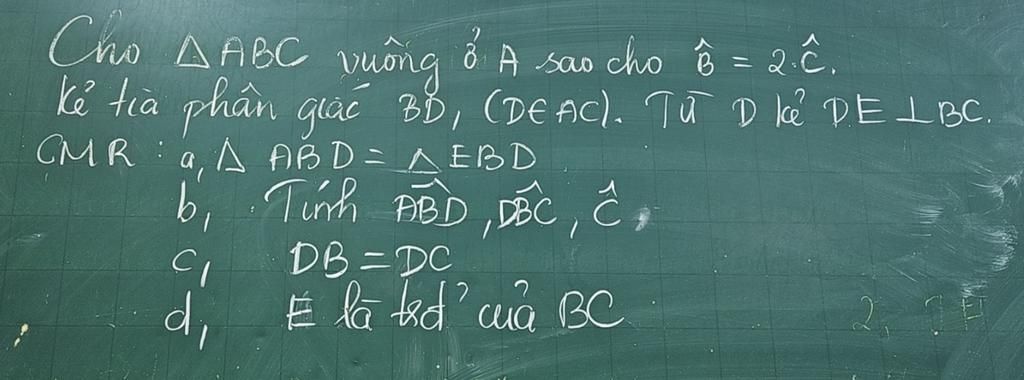 Cho △ABC vuông ở A sao cho B̂ = 2.Ĉ.
Kẻ tia phân giác BD, (D∈AC). Từ D kẻ DE⊥BC.
CMR : a, △ ABD = △ EBD
b, Tính ABD̂, DBĈ, Ĉ
c, DB = DC
d, E là trđ' của BC
2,